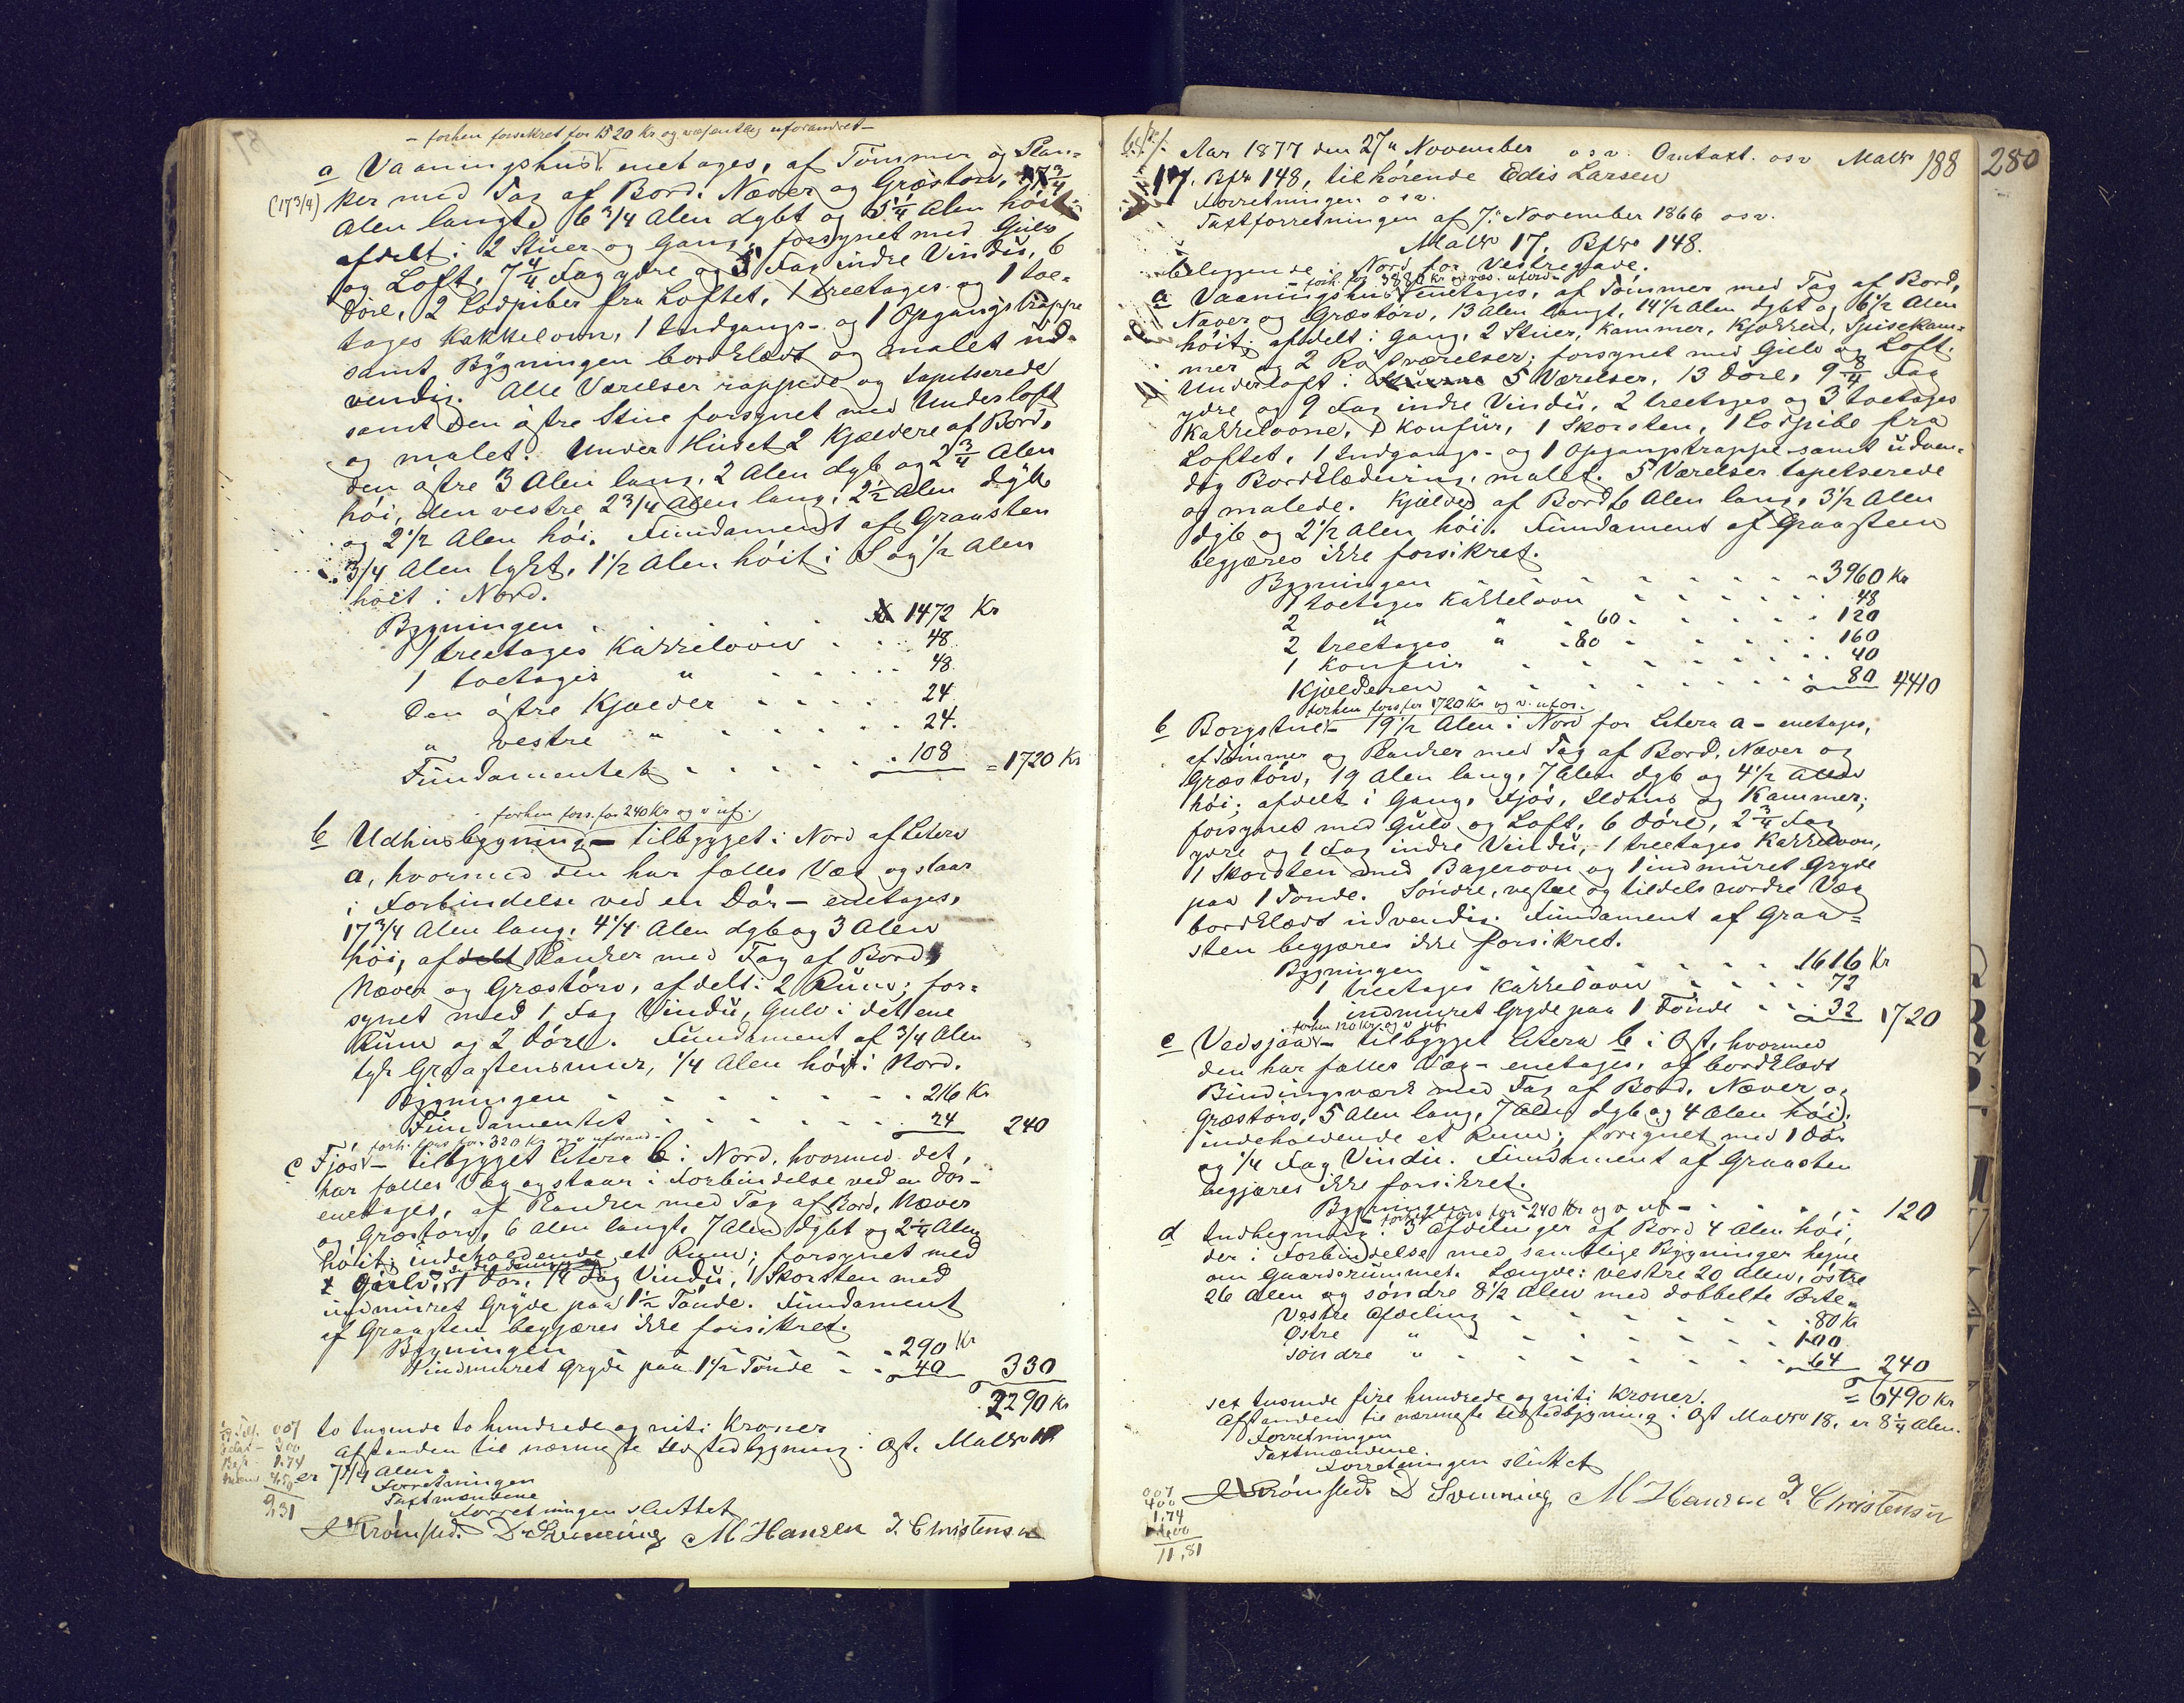 - forhen forsikret for 1520 Kr og væsentlig uforandret -
a Vaaningshus enetages, af Tømmer og Plan-
(17 3/4) ker med Tag af Bord, Næver og Græstorv, 17 3/4
Alen langt, 6 3/4 Alen dybt og 5 1/4 Alen høit
afdelt i 2 Stuer og Gang, forsynet med Gulv
og Loft, 7 4/4 Fag ydre og 5 Fag indre Vindu, 6
Døre, 2 Lodpiber fra Loftet, 1 treetages og 1 toe-
tages Kakkelovn, 1 Indgangs- og 1 Opgangstrappe
samt Bygningen bordklædt og malet ud-
vendig. Alle Værelser rappede og tapetserede
samt den østre Stue forsynet med Underloft
og malet. Under Huset 2 Kjældere af Bord,
den østre 3 Alen lang, 2 Alen dyb og 2 3/4 Alen
høi, den vestre 2 3/4 Alen lang, 2 1/2 Alen dyb
og 2 1/2 Alen høi. Fundament af Graasten
3/4 Alen tykt, 1 1/2 Alen høit i S og 1/2 Alen
høit i Nord.
Bygningen 1472 Kr
1 treetages Kakkelovn 48
1 toetages " 48
Den østre Kjælder 24
" vestre " 24.
Fundamentet 108 = 1720 Kr
forhen fors. for 240 Kr og v uf.
b Udhusbygning - tilbygget i Nord af Litera
a, hvormed den har fælles Væg og staar
i Forbindelse ved en Dør - enetages,
17 3/4 Alen lang, 4 1/4 Alen dyb og 3 Alen
høi, af Planker med Tag af Bord,
Næver og Græstørv, afdelt i 2 Rum; for-
synet med 1 Fag Vindu, Gulv i det ene
Rum og 2 Døre. Fundament af 3/4 Alen
tyk Graastensmur, 1/4 Alen høit i Nord.
Bygningen 216 Kr
Fundamentet 24 240
forh. fors for 320 Kr og v uforand.
c Fjøs - tilbygget Litera b i Nord, hvormed det,
har fælles Væg og staar i Forbindelse ved en Dør -
enetages, af Planker med Tag af Bord, Næver
og Græstørv, 6 Alen langt, 7 Alen dybt og 2 1/4 Alen
høit; indeholdende et Rum; forsynet med
Gulv, 1 Dør, 1/4 Fag Vindu, 1 Skorsten med
indmuret Gryde paa 1 1/2 Tønde. Fundament
af Graasten begjæres ikke forsikret.
Bygningen 290 Kr
1 indmuret Gryde paa 1 1/2 Tønde 40 330
2290 Kr
to tusende to hundrede og niti Kroner
Afstanden til nærmeste Ildstedbygning i Øst, Mat No 18
er 7 1/4 Alen.
Forretningen
Taxtmændene
Forretningen sluttet
J Krømsted. D Svenning M Hansen J. Christensen
007
300
1.74
4.50
9,31
188 280
Aar 1877 den 27de November osv. Omtaxt. osv Mat No
17. Bf No 148, tilhørende Edis Larsen
Forretningen osv.
Taxtforretningen af 7. November 1866 osv.
Mat No 17. Bf No 148.
beliggende i Nord for Vestregade.
- forh. for 3880 Kr og væs. uforand -
a Vaaningshus enetages, af Tømmer med Tag af Bord,
Næver og Græstørv, 13 Alen langt, 14 1/2 Alen dybt og 6 1/2 Alen
høit; afdelt i Gang, 2 Stuer, Kammer, Kjøkken, Spisekam-
mer og 2 Kvistværelser; forsynet med Gulv og Loft.
Underloft i 5 Værelser, 13 Døre, 9 8/4 Fag
ydre og 9 Fag indre Vindu, 2 treetages og 3 toetages
Kakkelovne, 1 Konfur, 1 Skorsten, 1 Lodpibe fra
Loftet, 1 Indgangs- og 1 Opgangstrappe samt udven-
dig Bordklædning, malet. 5 Værelser tapetserede
og malede. Kjælder af Bord 6 Alen lang, 3 1/2 Alen
dyb og 2 1/2 Alen høi. Fundament af Graasteen
begjæres ikke forsikret.
Bygningen 3960 Kr
1 toetages Kakkelovn 48
2 " " 60 120
2 treetages " 80 160
1 Konfur 40
Kjælderen 80 4410
forhen fors for 1720 Kr og v. ufor.
b Borgstue - 19 1/2 Alen i Nord for Litera a - enetages,
af Tømmer og Planker med Tag af Bord, Næver og
Græstørv, 19 Alen lang, 7 Alen dyb og 4 1/2 Alen
høi; afdelt i Gang, Fjøs, Ildhus og Kammer;
forsynet med Gulv og Loft, 6 Døre, 2 3/4 Fag
ydre og 1 Fag indre Vindu, 1 treetages Kakkelovn,
1 Skorsten med Bagerovn og 1 indmuret Gryde
paa 1 Tønde. Søndre, vestre og tildels nordre Væg
bordklædt udvendig. Fundament af Graa-
sten begjæres ikke forsikret.
Bygningen 1616 Kr
1 treetages Kakkelovn 72
1 indmuret Gryde paa 1 Tønde 32 1720
forhen 120 Kr og v uf
c Vedsjaa - tilbygget Litera b i Øst, hvormed
den har fælles Væg - enetages, af bordklædt
Bindingsværk med Tag af Bord, Næver og
Græstørv, 5 Alen lang, 7 Alen dyb og 4 Alen høi,
indeholdende et Rum; forsynet med 1 Dør
og 1/4 Fag Vindu. Fundament af Graasten
begjæres ikke forsikret.
Bygningen 120
- forhen fors for 240 Kr og v uf -
d Indhegning i 3 Afdelinger af Bord 4 Alen høi,
der i Forbindelse med samtlige Bygninger hegne
om Gaardsrummet. Længde: vestre 20 Alen, østre
26 Alen og søndre 8 1/2 Alen med dobbelte Porte.
Vestre Afdeling 80 Kr
Østre " 100
Søndre " 64 240
= 6490 Kr
sex tusende fire hundrede og niti Kroner.
Afstanden til nærmeste Ildstedbygning i Øst Mat No 18, er 8 1/4 Alen.
Forretningen
Taxtmændene.
Forretningen sluttet
J Krømsted D Svenning M Hansen J. Christensen
007
400
1.74
11,81